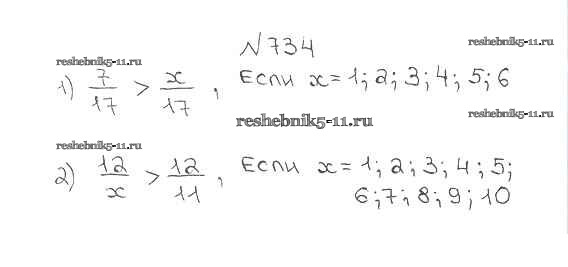 № 734
reshebnik5-11.ru
reshebnik5-11.ru
1) 7/17 > x/17, Если x = 1; 2; 3; 4; 5; 6
reshebnik5-11.ru
reshebnik5-11.ru
reshebnik5-11.ru
2) 12/x > 12/11, Если x = 1; 2; 3; 4; 5;
6; 7; 8; 9; 10